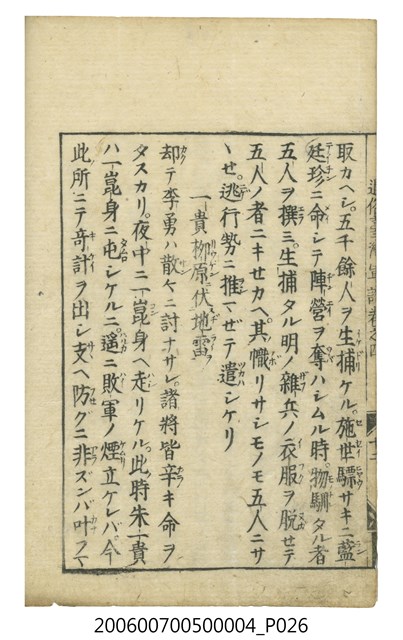 取カヘシ。五千餘人ヲ生捕ケル。施世驃サキニ藍
廷珍ニ命シテ陣營ヲ奪ハシムル時。物馴タル者
五人ヲ撰ミ。生捕タル明ノ雜兵ノ衣服ヲ脱セテ
五人ノ者ニキセカヘ。其幟リサシモノモ五人ニサ
ヽセ。逃行勢ニ推マゼテ遣シケリ
一貴柳原伏地雷
却テ李勇ハ散々ニ討ナサレ。諸將皆辛キ命ヲ
タスカリ。夜中ニ崑身ヘ走リケル。此時朱一貴
ハ崑身ニ屯シケルニ。遥ニ敗軍ノ煙立ケレバ。今
此所ニテ奇計ヲ出シ支ヘ防グニ非ズンバ叶フマ
200600700500004_P026